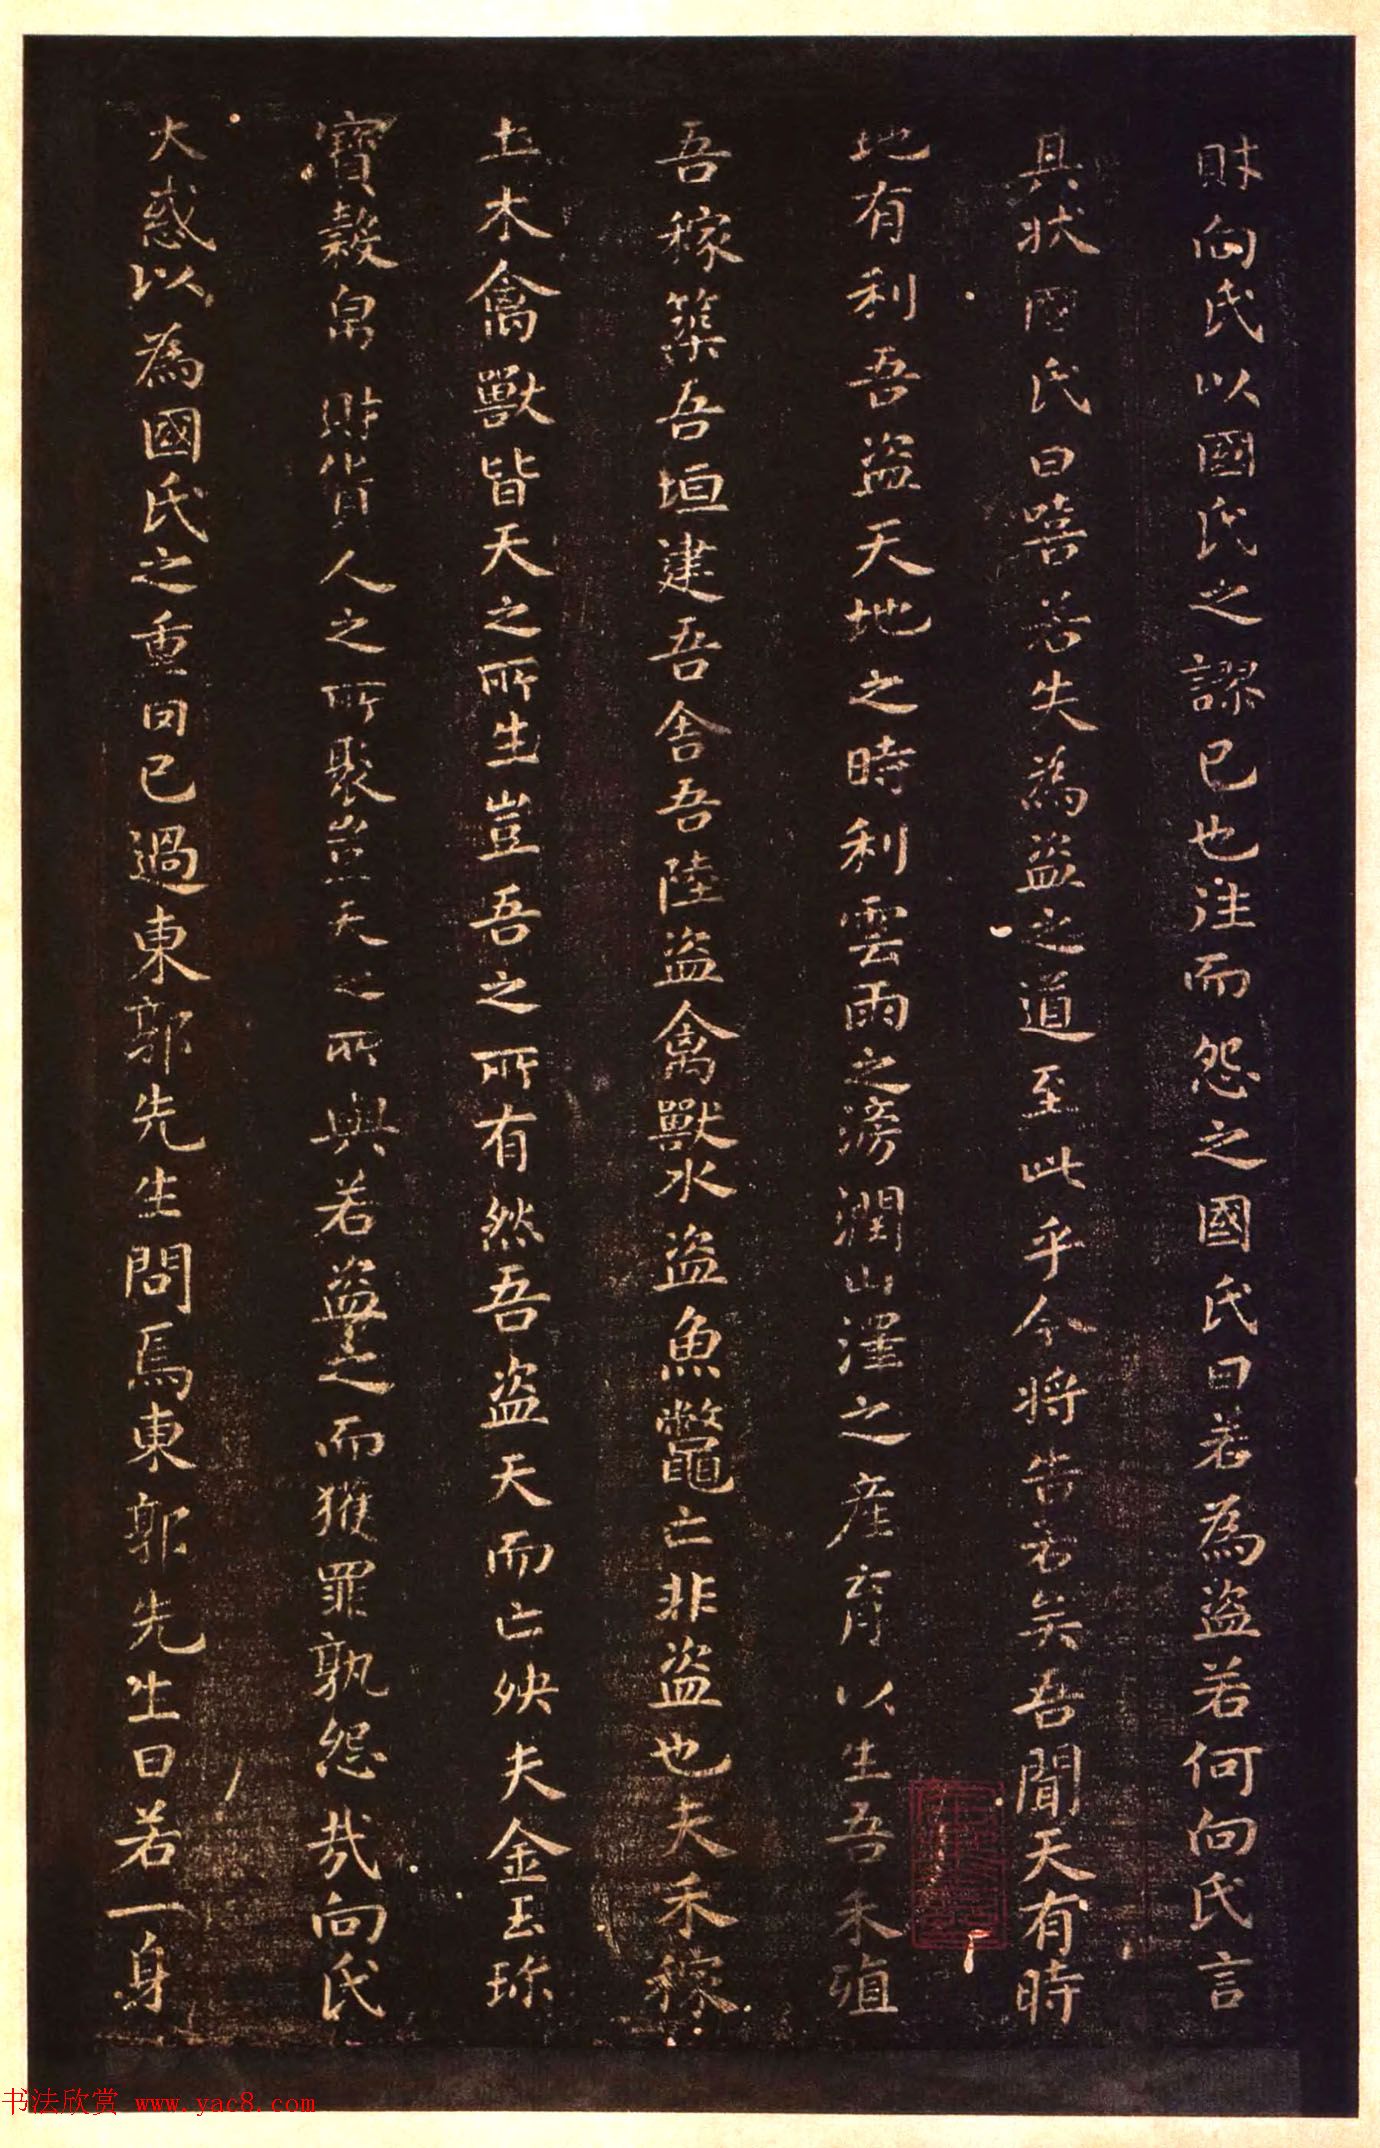 財向氏以國氏之謬己也往而怨之國氏曰若為盜若何向氏言
具狀國氏曰嘻若失為盜之道至此乎今將告若矣吾聞天有時
地有利吾盜天地之時利雲雨之滂潤山澤之產育以生吾禾殖
吾稼築吾垣建吾舍吾陸盜禽獸水盜魚鱉亡非盜也夫禾稼
土木禽獸皆天之所生豈吾之所有然吾盜天而亡殃夫金玉珎
寶穀帛財貨人之所聚豈天之所與若盜之而獲罪孰怨哉向氏
大惑以為國氏之重罔己過東郭先生問焉東郭先生曰若一身
书法欣赏 www.yac8.com